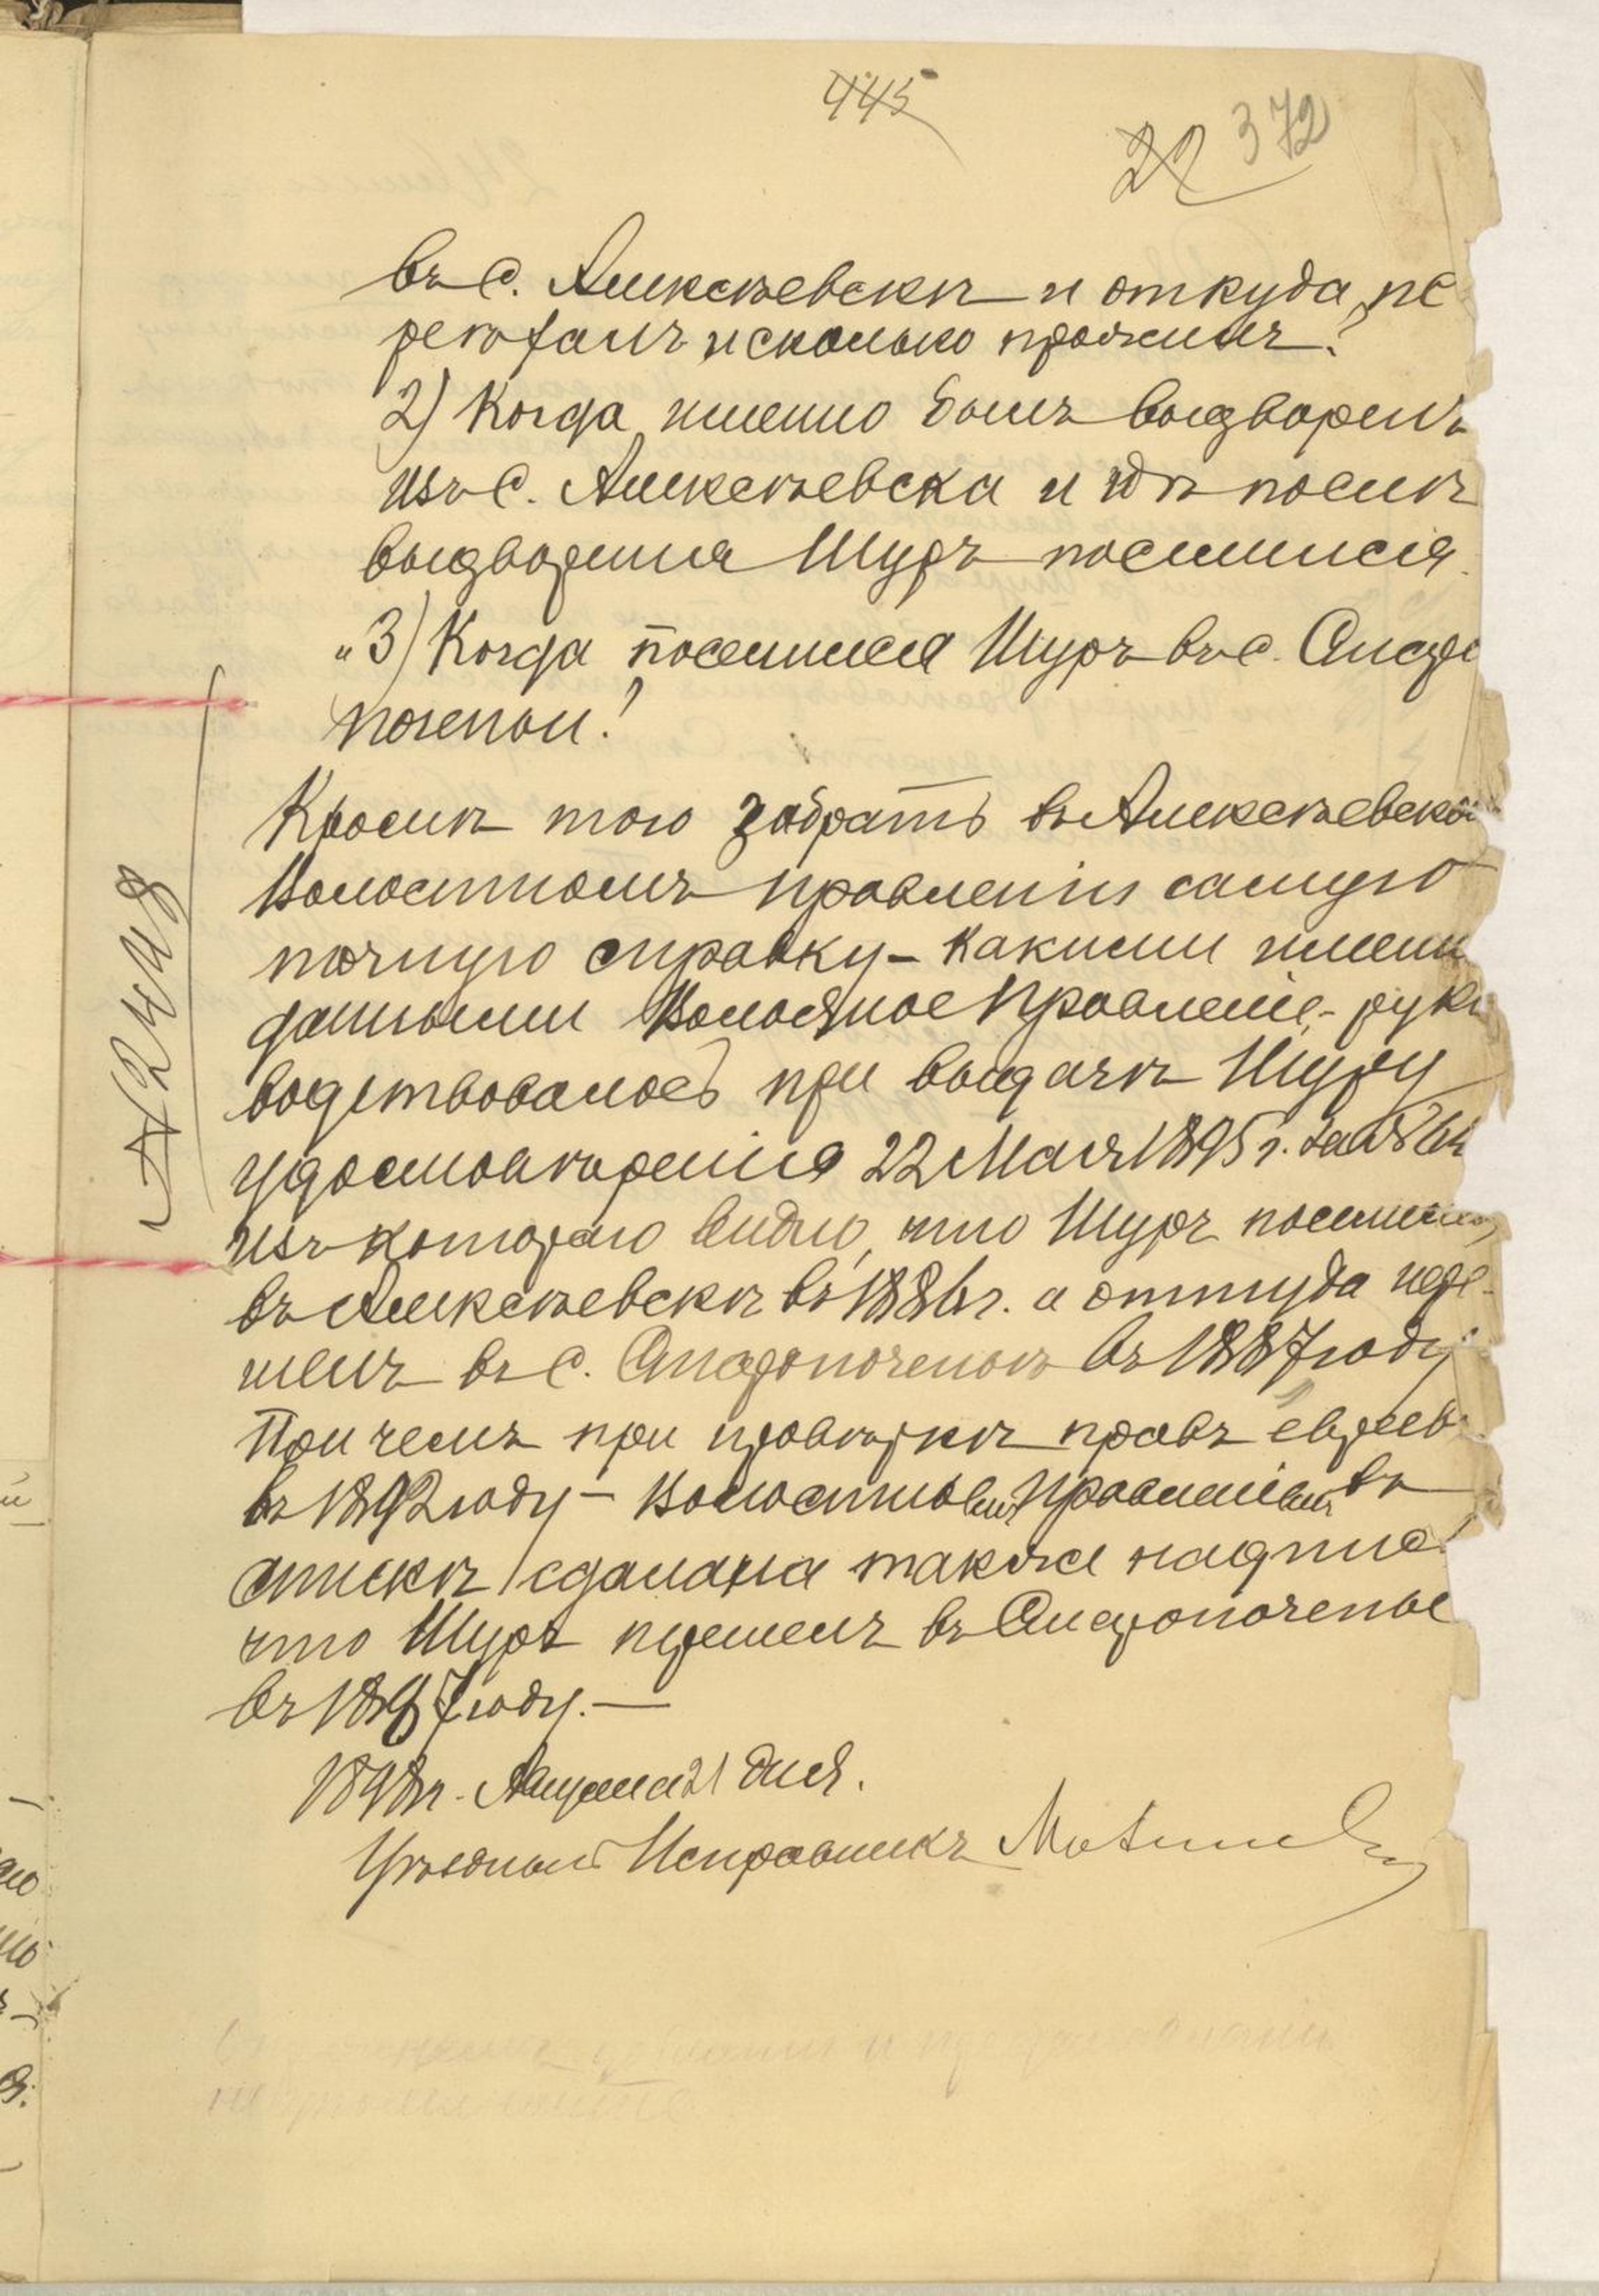 445
22 372
въ с. Алексѣевскѣ и откуда пе
реѣхалъ и сколько прожилъ?
2) Когда именно былъ выдворенъ
изъ с. Алексѣевска и гдѣ послѣ
выдворенія Шуръ поселился
„3) Когда поселился Шуръ въ с.
Кромѣ того забрать въ Алексѣевско
Волостномъ Правленіи самую
точную справку – какими имен
данными Волостное Правленіе, – руко
водствовалось при выдачѣ Шуру
удостовѣренія 22 Мая 1895 г. за №
изъ котораго видно, что Шуръ поселился
въ Алексѣевскѣ въ 1886 г. а оттуда пере-
шелъ въ с. Староконстеновъ въ 1887 году
При чемъ при провѣркѣ правъ евреевъ
въ 1892 году – Волостнымъ Правленіемъ въ
спискѣ сдѣлана также надпись
что Шуръ перешелъ въ
въ 1887 году. —
1898 г. Августа 21 дня.
Уѣздный Исправникъ